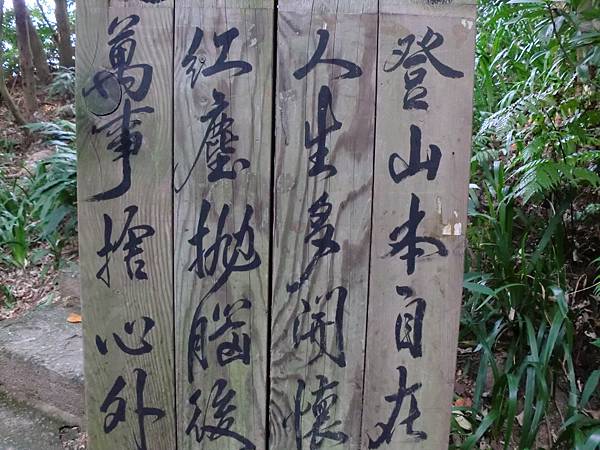 登山本自在
人生多開懷
紅塵拋腦後
萬事捨心外